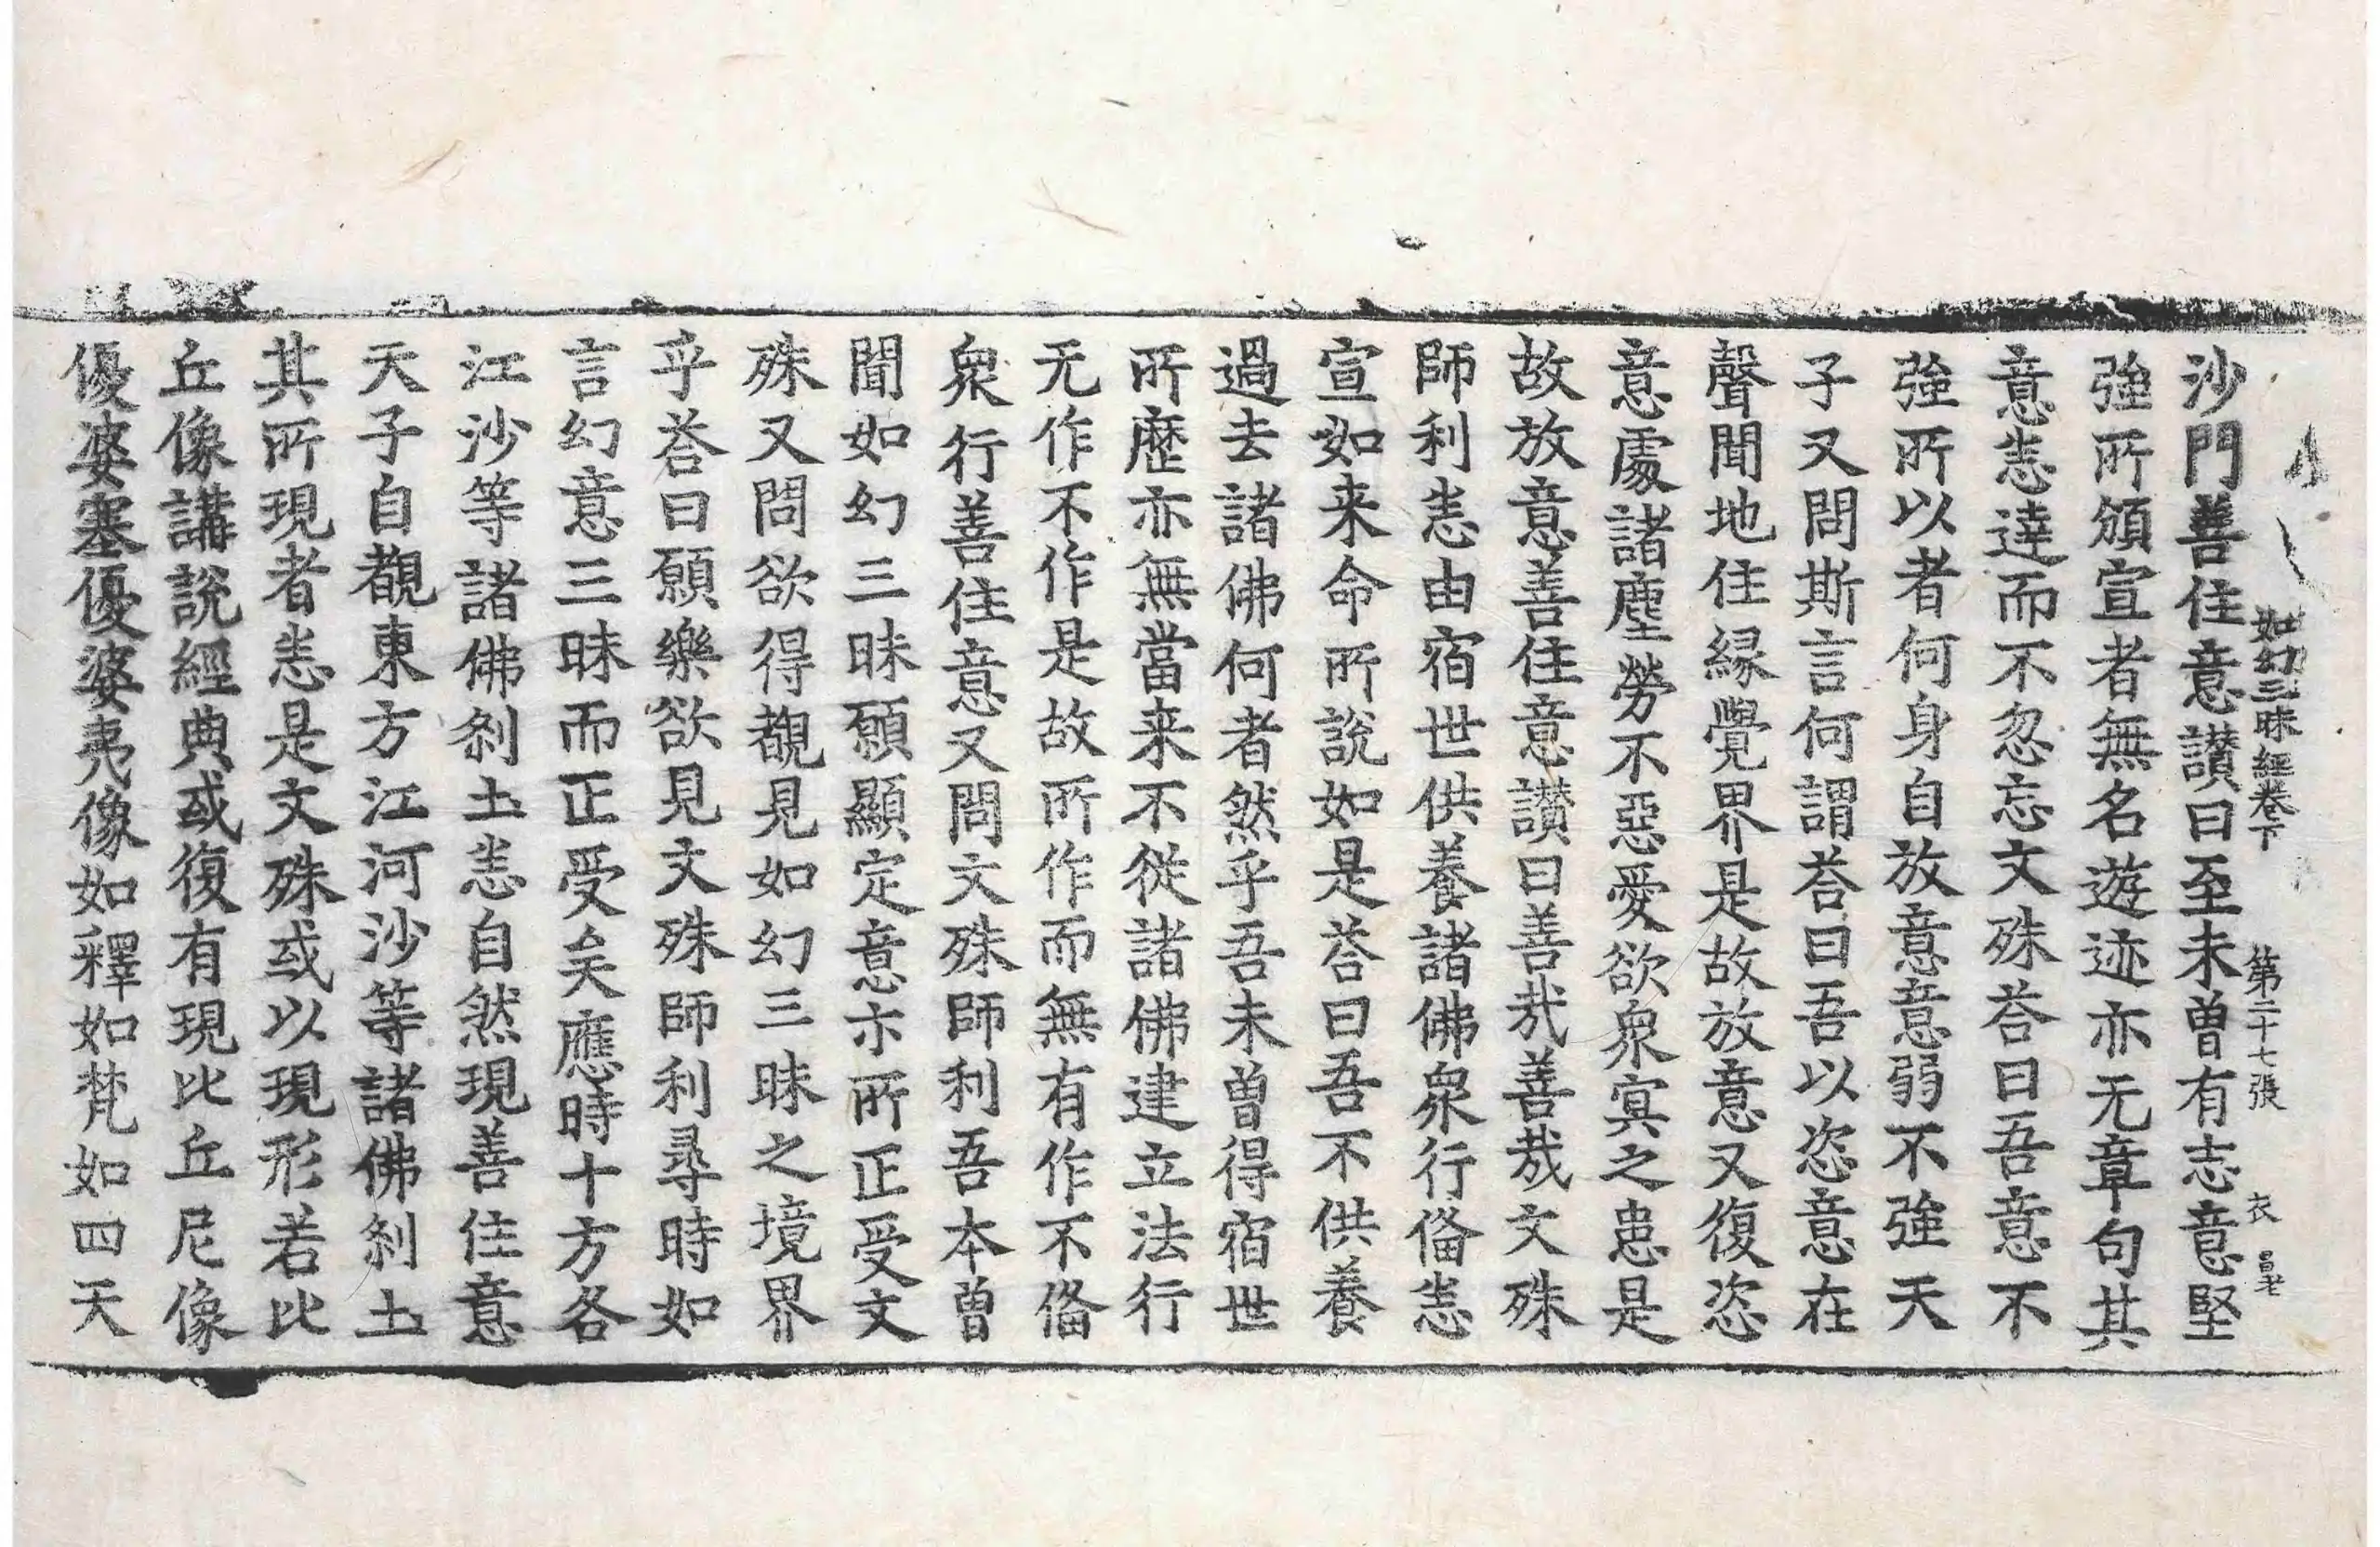 如幻三昧經卷下 第二十七張 衣
沙門善住意讃曰至未曾有志意堅
強所頒宣者無名遊迹亦无章句其
意恚達而不忽忘文殊荅曰吾意不
強所以者何身自放意意弱不強天
子又問斯言何謂荅曰吾以恣意在
聲聞地住縁覺界是故放意又復恣
意處諸塵勞不惡愛欲衆冥之患是
故放意善住意讃曰善哉善哉文殊
師利恚由宿世供養諸佛衆行俻恚
宣如来命所說如是荅曰吾不供養
過去諸佛何者然乎吾未曾得宿世
所歷亦無當来不從諸佛建立法行
无作不作是故所作而無有作不俻
衆行善住意又問文殊師利吾本曾
聞如幻三昧願顯定意亦所正受文
殊又問欲得覩見如幻三昧之境界
乎荅曰願樂欲見文殊師利尋時如
言幻意三昧而正受矣應時十方各
江沙等諸佛剎土恚自然現善住意
天子自覩東方江河沙等諸佛剎土
其所現者恚是文殊或以現形若比
丘像講說經典或復有現比丘尼像
優婆塞優婆夷像如釋如梵如四天